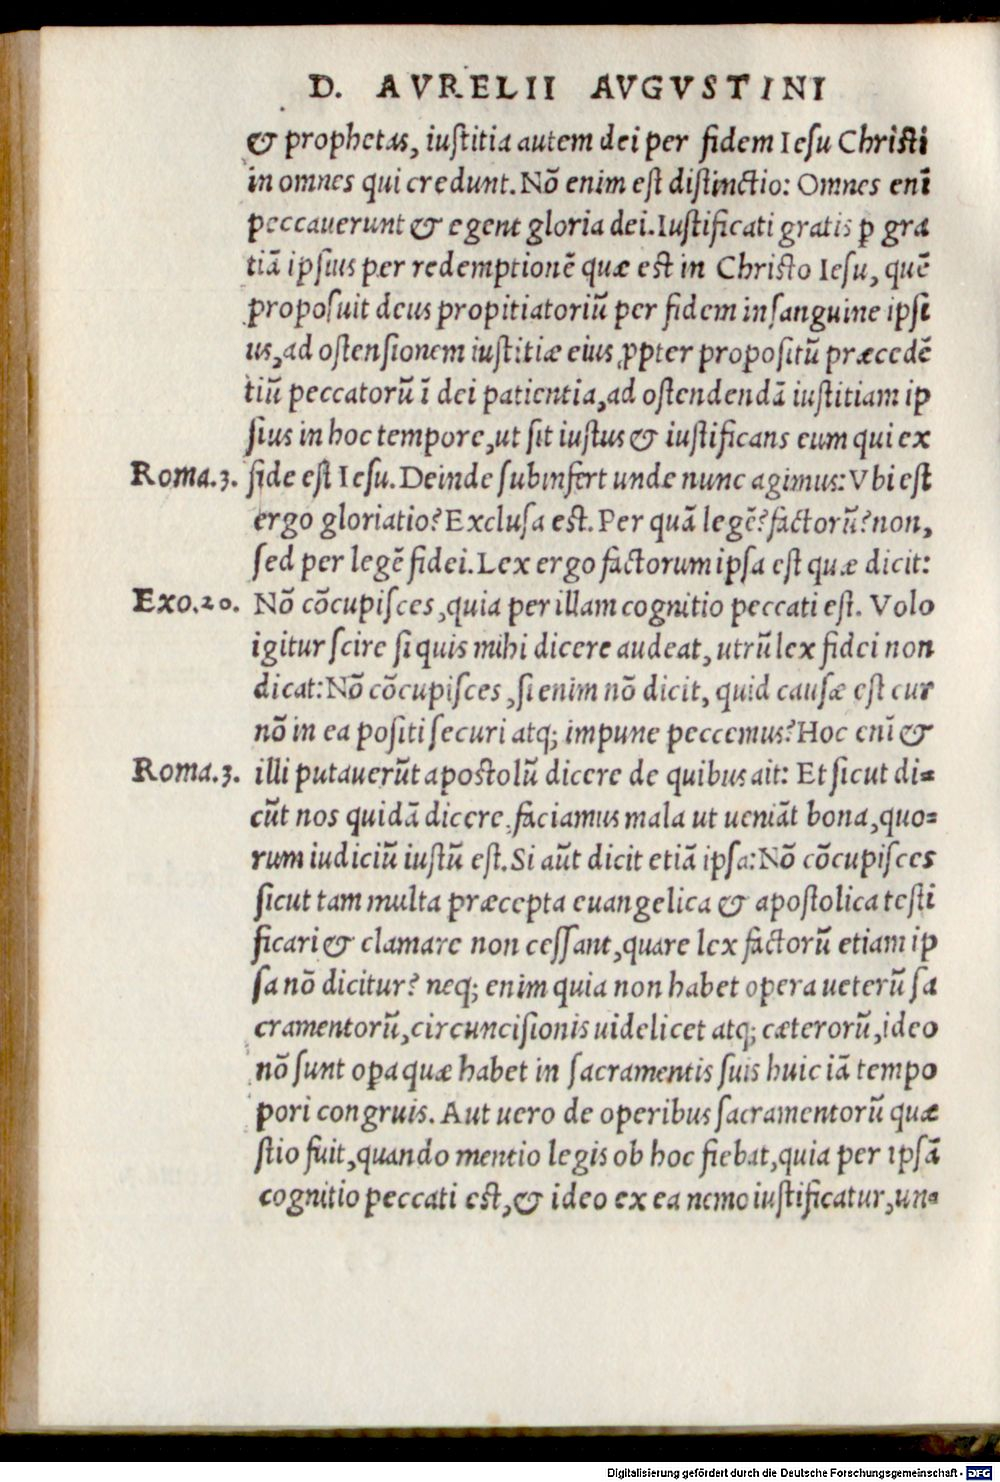 D. AVRELII AVGVSTINI
& prophetas, iustitia autem dei per fidem Iesu Christi
in omnes qui credunt. Nō enim est distinctio: Omnes enī
peccauerunt & egent gloria dei. Iustificati gratis ꝑ gra
tiā ipsius per redemptionē quæ est in Christo Iesu, quē
proposuit deus propitiatoriū per fidem in sanguine ipsi
us, ad ostensionem iustitiæ eius ꝓpter propositū præcedē
tiū peccatorū ī dei patientia, ad ostendendā iustitiam ip
sius in hoc tempore, ut sit iustus & iustificans eum qui ex
Roma.3. fide est Iesu. Deinde subinfert unde nunc agimus: Vbi est
ergo gloriatio? Exclusa est. Per quā legē? factorū? non,
sed per legē fidei. Lex ergo factorum ipsa est quæ dicit:
Exo.20. Nō cōcupisces, quia per illam cognitio peccati est. Volo
igitur scire si quis mihi dicere audeat, utrū lex fidei non
dicat: Nō cōcupisces, si enim nō dicit, quid causæ est cur
nō in ea positi securi atq; impune peccemus? Hoc enī &
Roma.3. illi putauerūt apostolū dicere de quibus ait: Et sicut di=
cūt nos quidā dicere, faciamus mala ut ueniāt bona, quo=
rum iudiciū iustū est. Si aūt dicit etiā ipsa: Nō cōcupisces
sicut tam multa præcepta euangelica & apostolica testi
ficari & clamare non cessant, quare lex factorū etiam ip
sa nō dicitur? neq; enim quia non habet opera ueterū sa
cramentorū, circuncisionis uidelicet atq; cæterorū, ideo
nō sunt oꝑa quæ habet in sacramentis suis huic iā tempo
pori congruis. Aut uero de operibus sacramentorū quæ
stio fuit, quando mentio legis ob hoc fiebat, quia per ipsā
cognitio peccati est, & ideo ex ea nemo iustificatur, un=
Digitalisierung gefördert durch die Deutsche Forschungsgemeinschaft - DFG